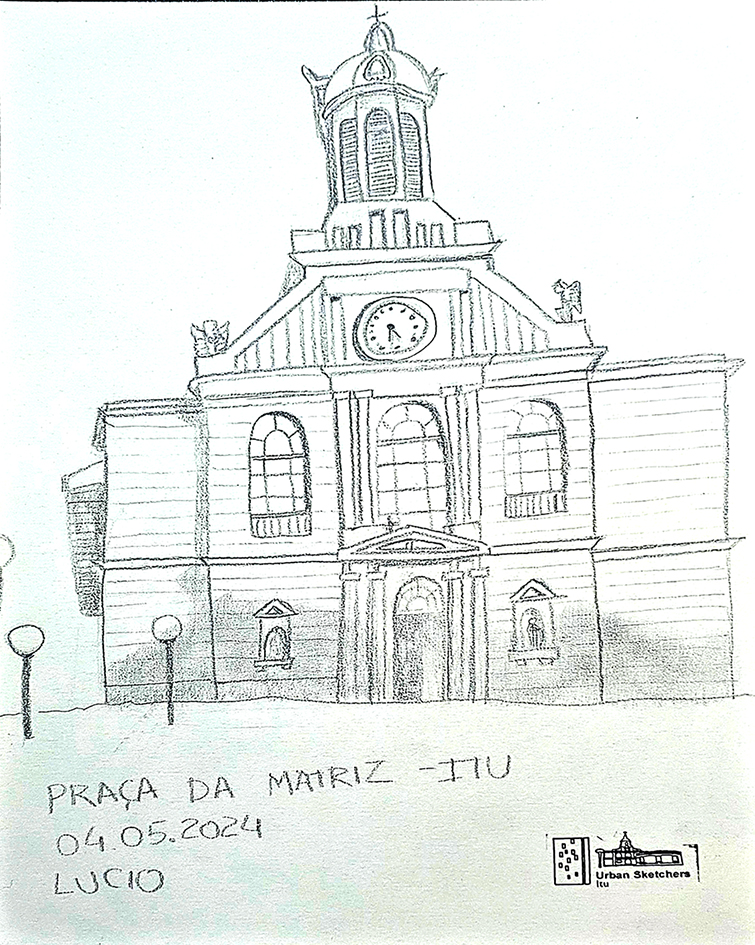 PRAÇA DA MATRIZ - ITU
04.05.2024
LUCIO
Urban Sketchers
Itu